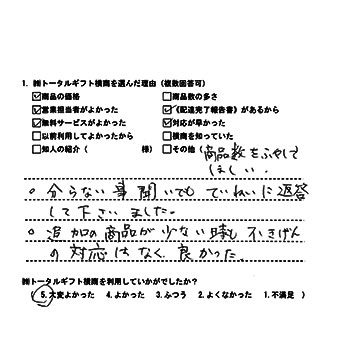 1. ㈱トータルギフト横商を選んだ理由（複数回答可）
☑商品の価格 □商品数の多さ
☑営業担当者がよかった ☑《配達完了報告書》があるから
☑無料サービスがよかった ☑対応が早かった
□以前利用してよかったから □横商を知っていた
□知人の紹介（ 様） □その他（商品数をふやして
ほしい.
○ 分らない事聞いてもていねいに返答
して下さいました。
○ 追加の商品が少ない時も不きげん
の対応はなく良かった。
㈱トータルギフト横商を利用していかがでしたか？
（ 5.大変よかった 4.よかった 3.ふつう 2.よくなかった 1.不満足 ）